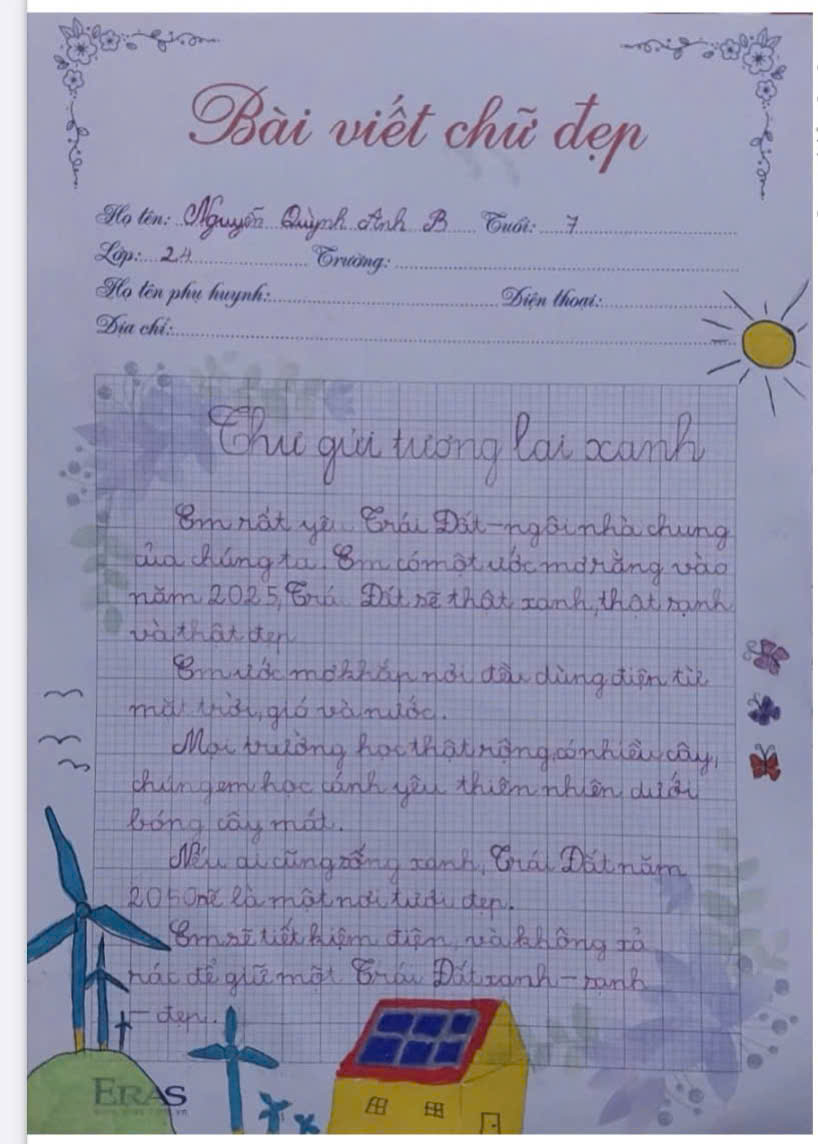 Bài viết chữ đẹp
Họ tên: Nguyễn Quỳnh Anh B Tuổi: 7
Lớp: 2A Trường:
Họ tên phụ huynh: Điện thoại:
Địa chỉ:
Thư gửi tương lai xanh
Em rất yêu Trái Đất - ngôi nhà chung
của chúng ta. Em có một ước mơ rằng vào
năm 2025, Trái Đất sẽ thật xanh, thật sạnh
và thật đẹp
Em ước mơ khắp nơi đều dùng điện từ
mặt trời, gió và nước.
Mọi trường học thật rộng, có nhiều cây,
chúng em học cánh yêu thiên nhiên dưới
bóng cây mát.
Nếu ai cũng sống xanh, Trái Đất năm
2050 sẽ là một nơi tươi đẹp.
Em sẽ tiết kiệm điện, và không xả
rác để giữ một Trái Đất xanh - sạnh
- đẹp.
ERAS